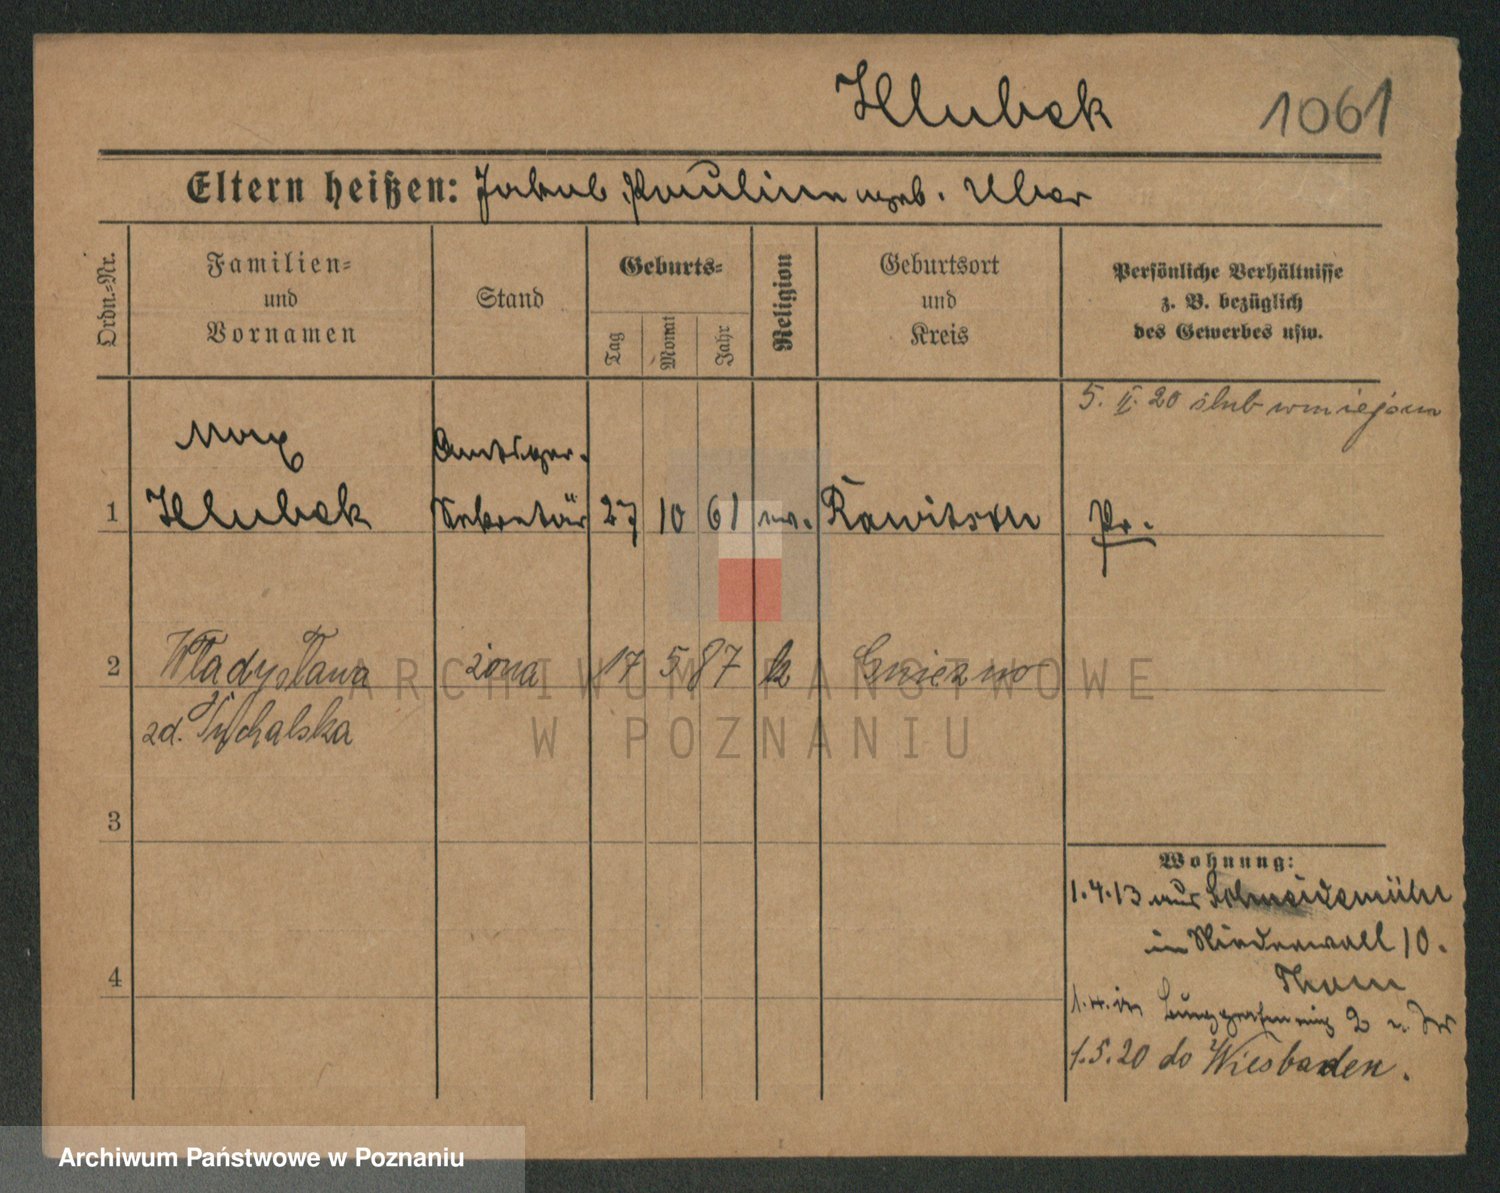 Hlubek 1061
Eltern heißen: Jakob Pauline geb. Uber
Ordn.-Nr.
Familien-
und
Vornamen
Stand
Geburts-
Tag
Monat
Jahr
Religion
Geburtsort
und
Kreis
Persönliche Verhältnisse
z. B. bezüglich
des Gewerbes usw.
5. II. 20 ślub w miejscu
Max Amtsger.
1 Hlubek Sekretär 27 10 61 ev. Rawitsch Pr.
2 Władysława żona 17 5 87 k Gniezno
zd. Tychalska
3
4
Wohnung:
1.4.13 aus Schneidemühl
in Niederwall 10.
Thorn
1.5.20 do Wiesbaden.
ARCHIWUM PAŃSTWOWE
W POZNANIU
Archiwum Państwowe w Poznaniu